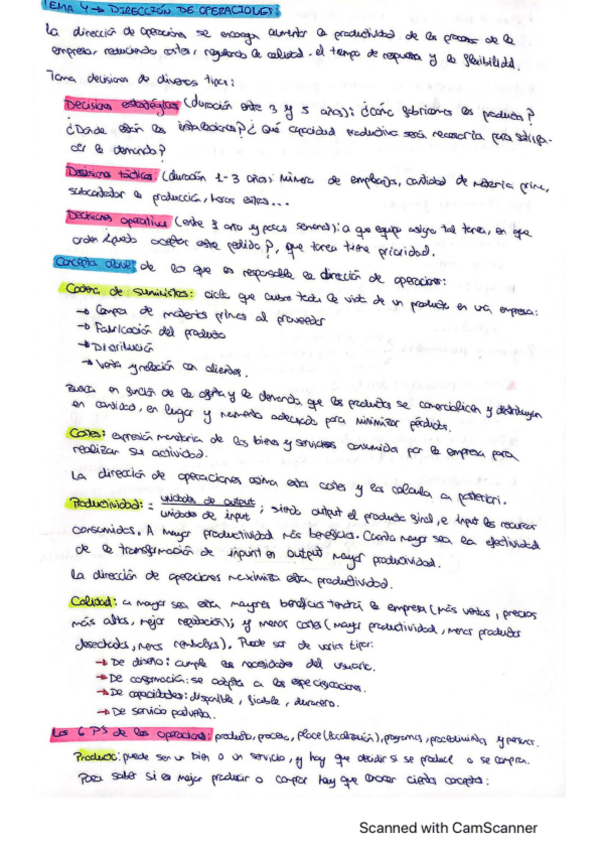 TEMA 4 → DIRECCIÓN DE OPERACIONES:
La dirección de operaciones se encarga aumentar la productividad de los procesos de la
empresa, reduciendo costes, regulando la calidad, el tiempo de respuesta y la flexibilidad.
Toma decisiones de diversos tipos:
Decisiones estratégicas (duración entre 3 y 5 años): ¿cómo fabricamos los productos?
¿Dónde están las instalaciones? ¿Qué capacidad productiva será necesaria para satisfa-
cer la demanda?
Decisiones tácticas (duración 1-3 años): Número de empleados, cantidad de materia prima,
subcontratar la producción, horas extras...
Decisiones operativas (entre 1 año y pocas semanas): a que equipo asigno tal tarea, en que
orden ¿puedo aceptar este pedido?, que tarea tiene prioridad.
Conceptos clave: de lo que es responsable la dirección de operaciones:
Cadena de suministros: ciclo que cubre toda la vida de un producto en una empresa:
→ Compra de materias primas al proveedor
→ Fabricación del producto
→ Distribución
→ Venta y relación con clientes.
Busca en función de la oferta y la demanda que los productos se comercialicen y distribuyan
en cantidad, en lugar y momento adecuados para minimizar pérdidas.
Costes: expresión monetaria de los bienes y servicios consumidos por la empresa para
realizar su actividad.
La dirección de operaciones estima estos costes y los calcula a posteriori.
Productividad: = unidades de output / unidades de input ; siendo output el producto final, e input los recursos
consumidos. A mayor productividad más beneficios. Cuanto mayor sea la efectividad
de la transformación de input en output mayor productividad.
La dirección de operaciones maximiza esta productividad.
Calidad: a mayor sea esta mayores beneficios tendrá la empresa (más ventas, precios
más altos, mejor reputación); y menos costes (mayor productividad, menos productos
desechados, menos reembolsos). Puede ser de varios tipos:
→ De diseño: cumple las necesidades del usuario.
→ De conformación: se adapta a las especificaciones.
→ De capacidades: disponible, fiable, duradero.
→ De servicio postventa.
Las 6 P'S de las operaciones: producto, proceso, place (localización), programas, procedimientos y personas.
Producto: puede ser un bien o un servicio, y hay que decidir si se produce o se compra.
Para saber si es mejor producir o comprar hay que conocer ciertos conceptos:
Scanned with CamScanner